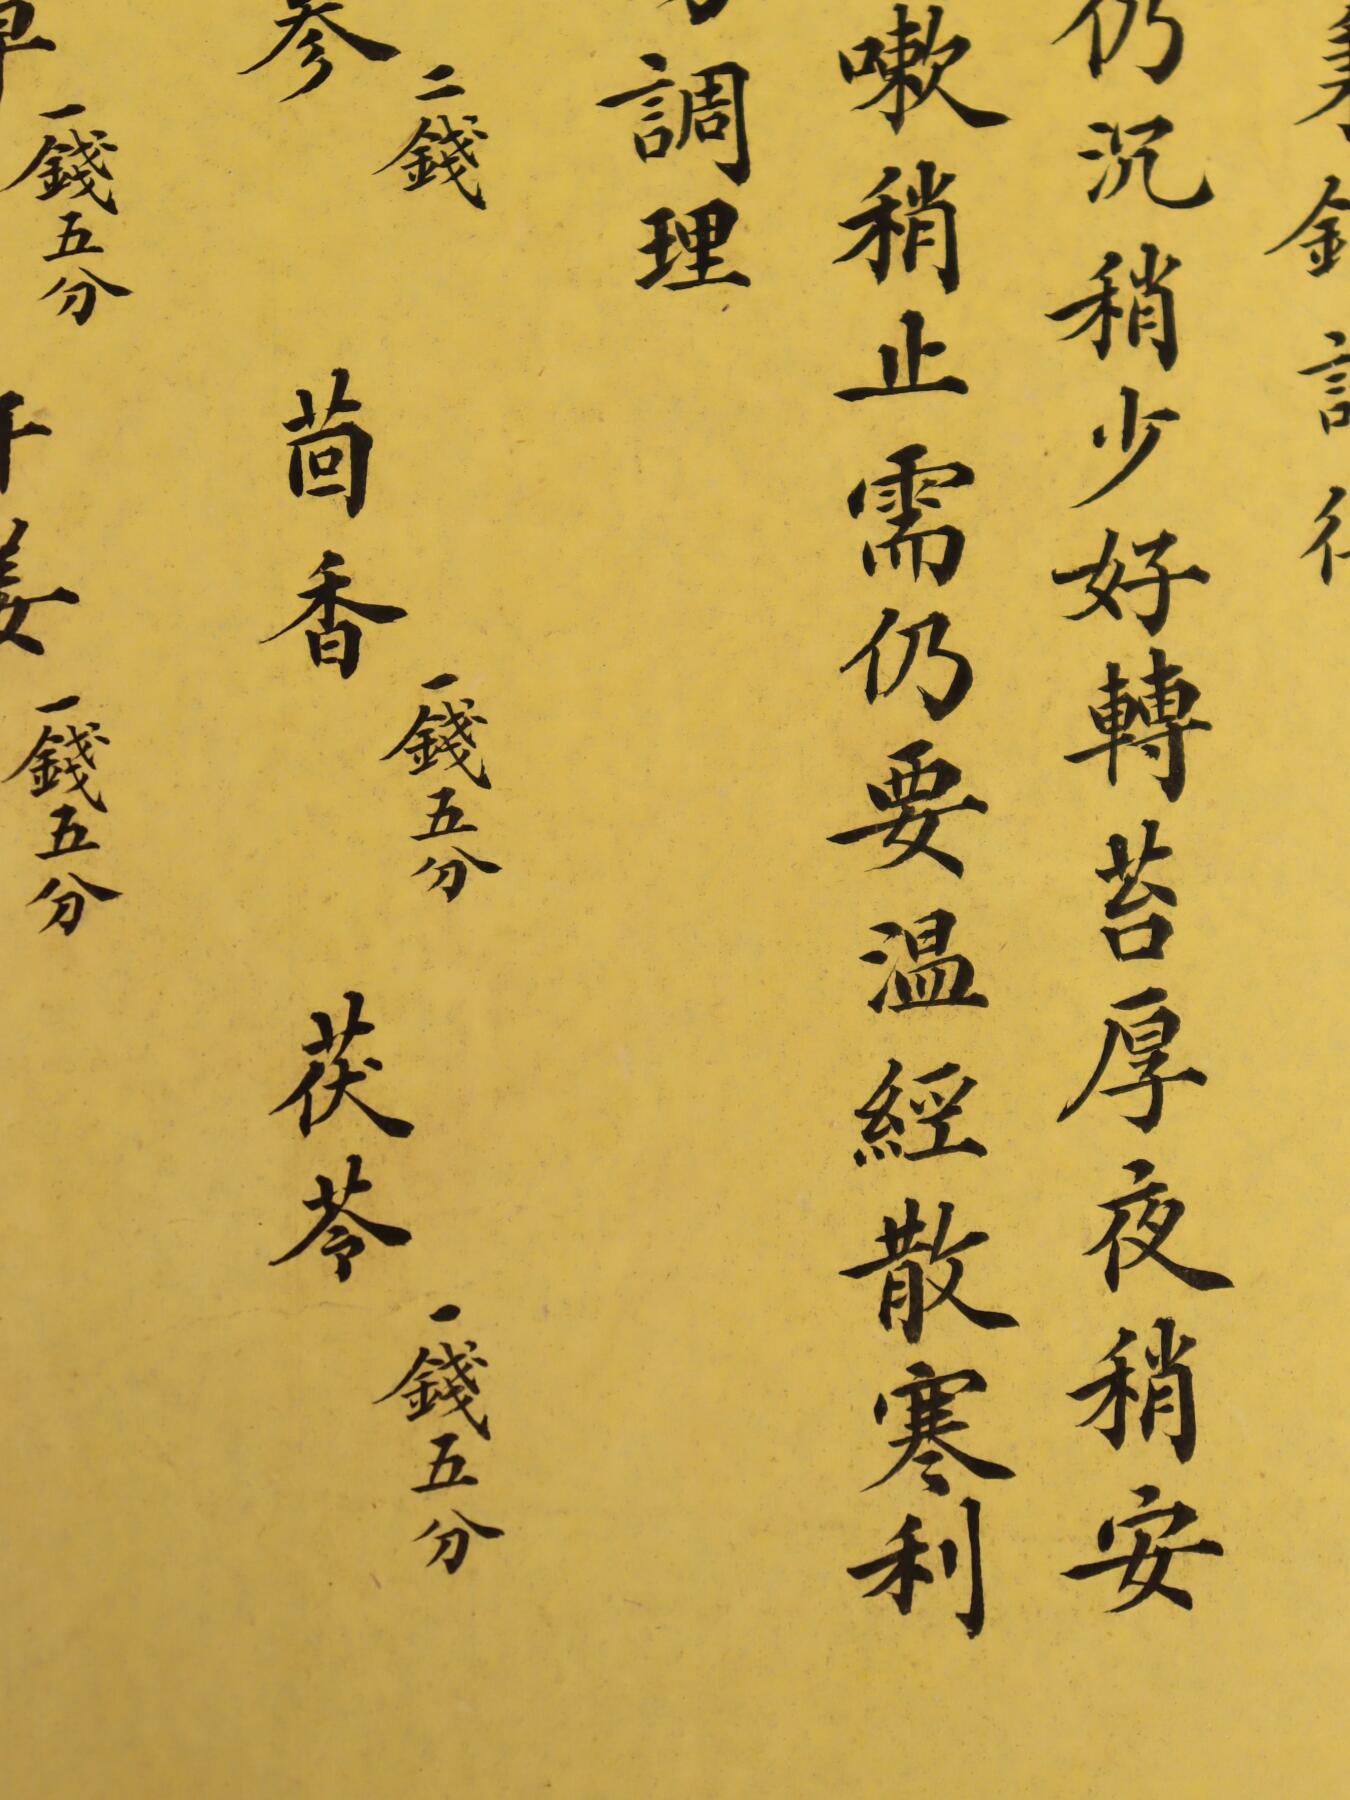 仍沉稍少好轉苔厚夜稍安
嗽稍止需仍要温經散寒利
調理
參二錢 茴香一錢五分 茯苓一錢五分
一錢五分 姜一錢五分